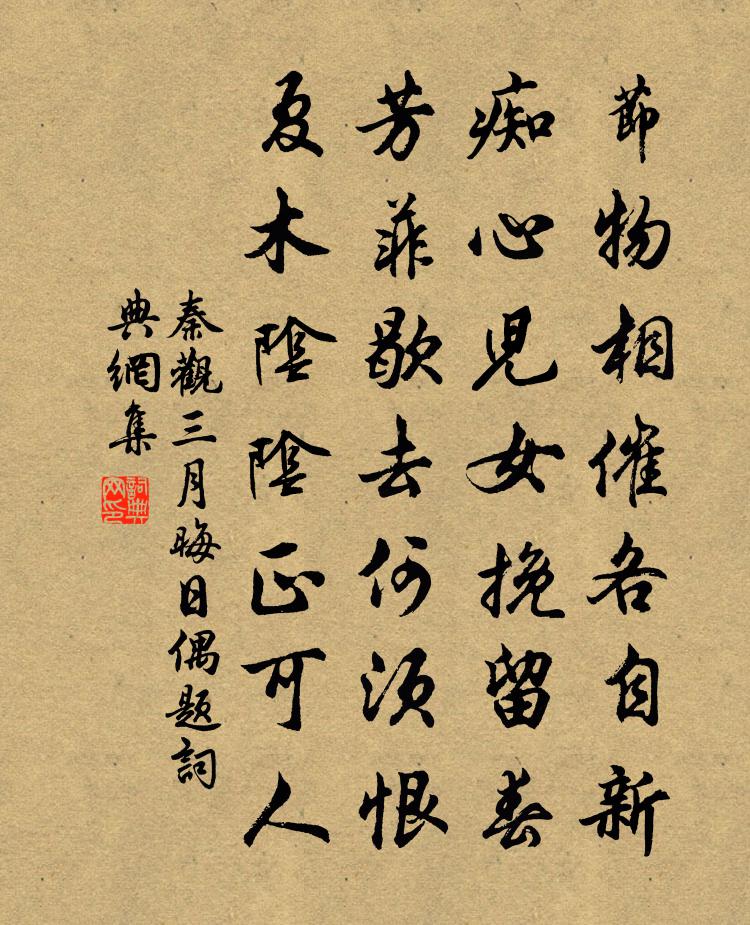 節物相催各自新
痴心兒女挽留春
芳菲歇去何須恨
夏木陰陰正可人
秦觀三月晦日偶題詞
典網集
詞典網印